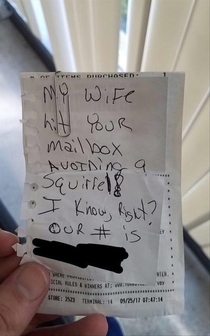 # OF ITEMS PURCHASED:
MY WiFE
hit YOUR
mailbox
AVOIDING A
SQUIRREl!
I Know, Right?
OUR # is
STORE: 2523 TERMINAL: 14 09/25/17 07:47:14